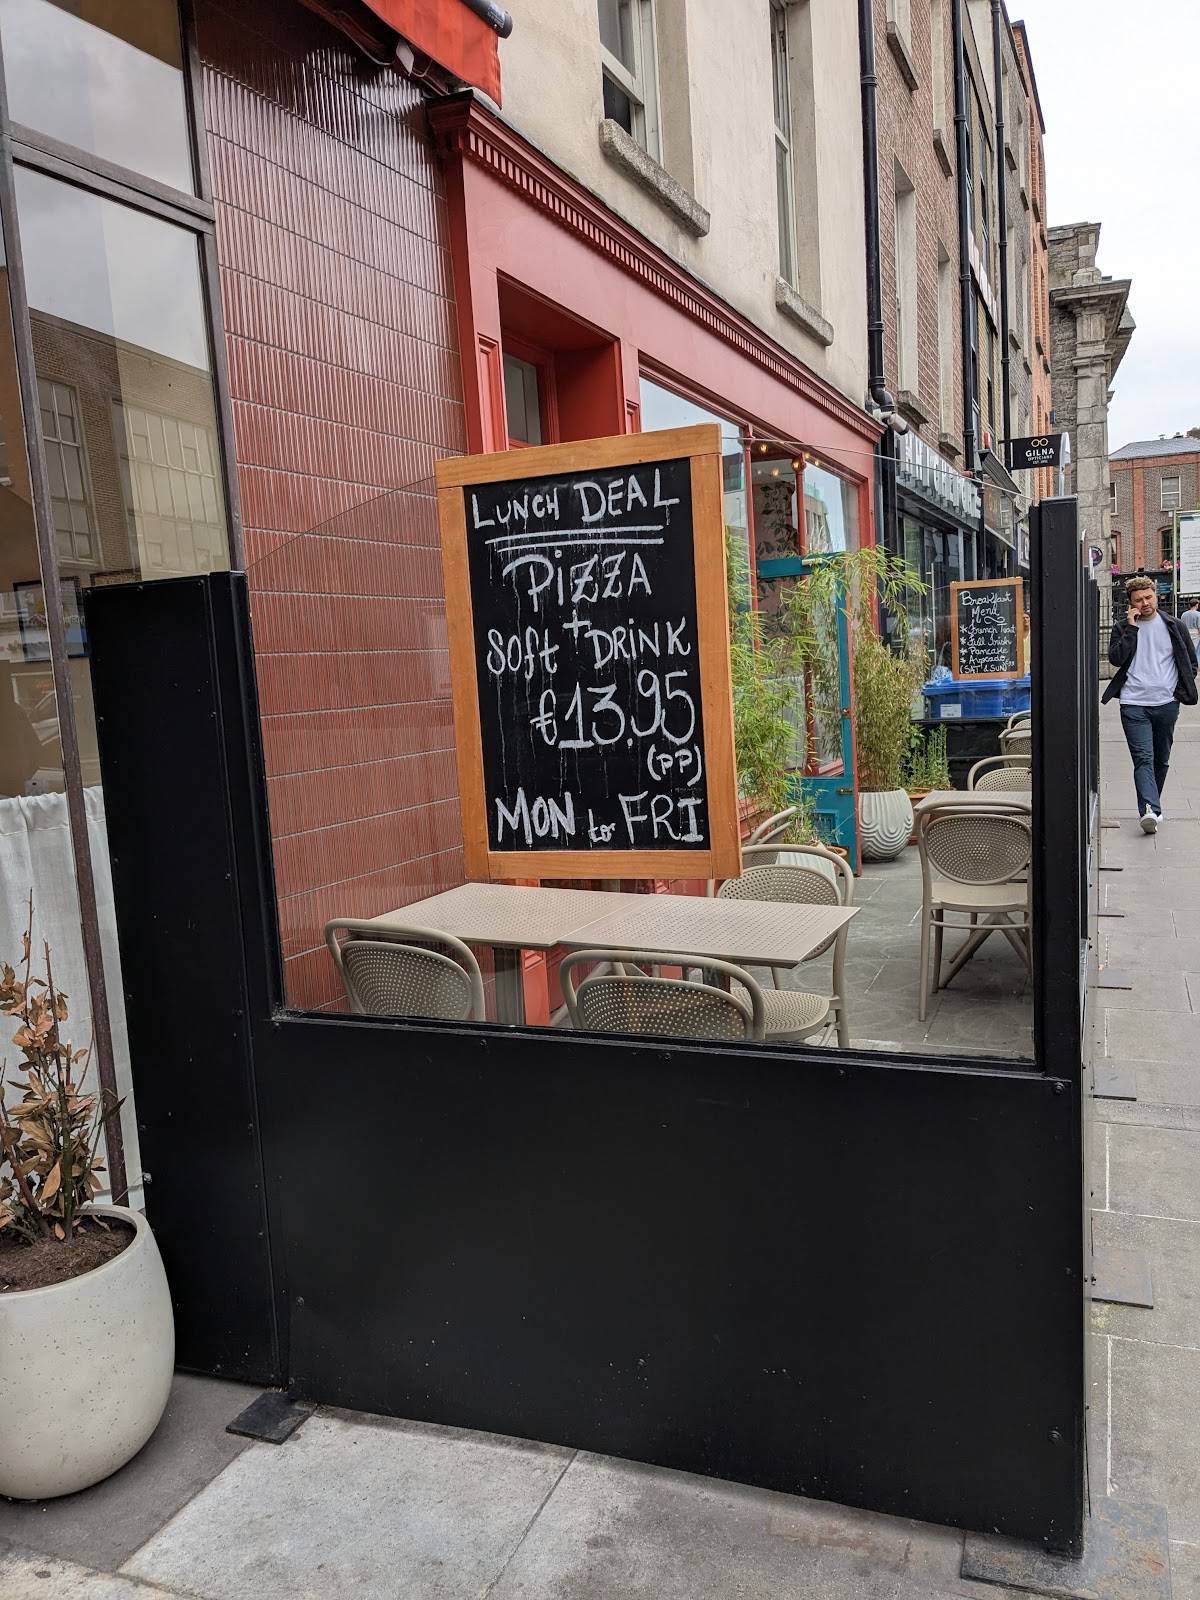 LUNCH DEAL
PiZZA
+
SOft DRiNK
€13.95
(PP)
MON to FRI
GILNA
OPTICIANS
Breakfast
Menu
* Full Irish
* Pancake
* Avocado
(SAT & SUN)